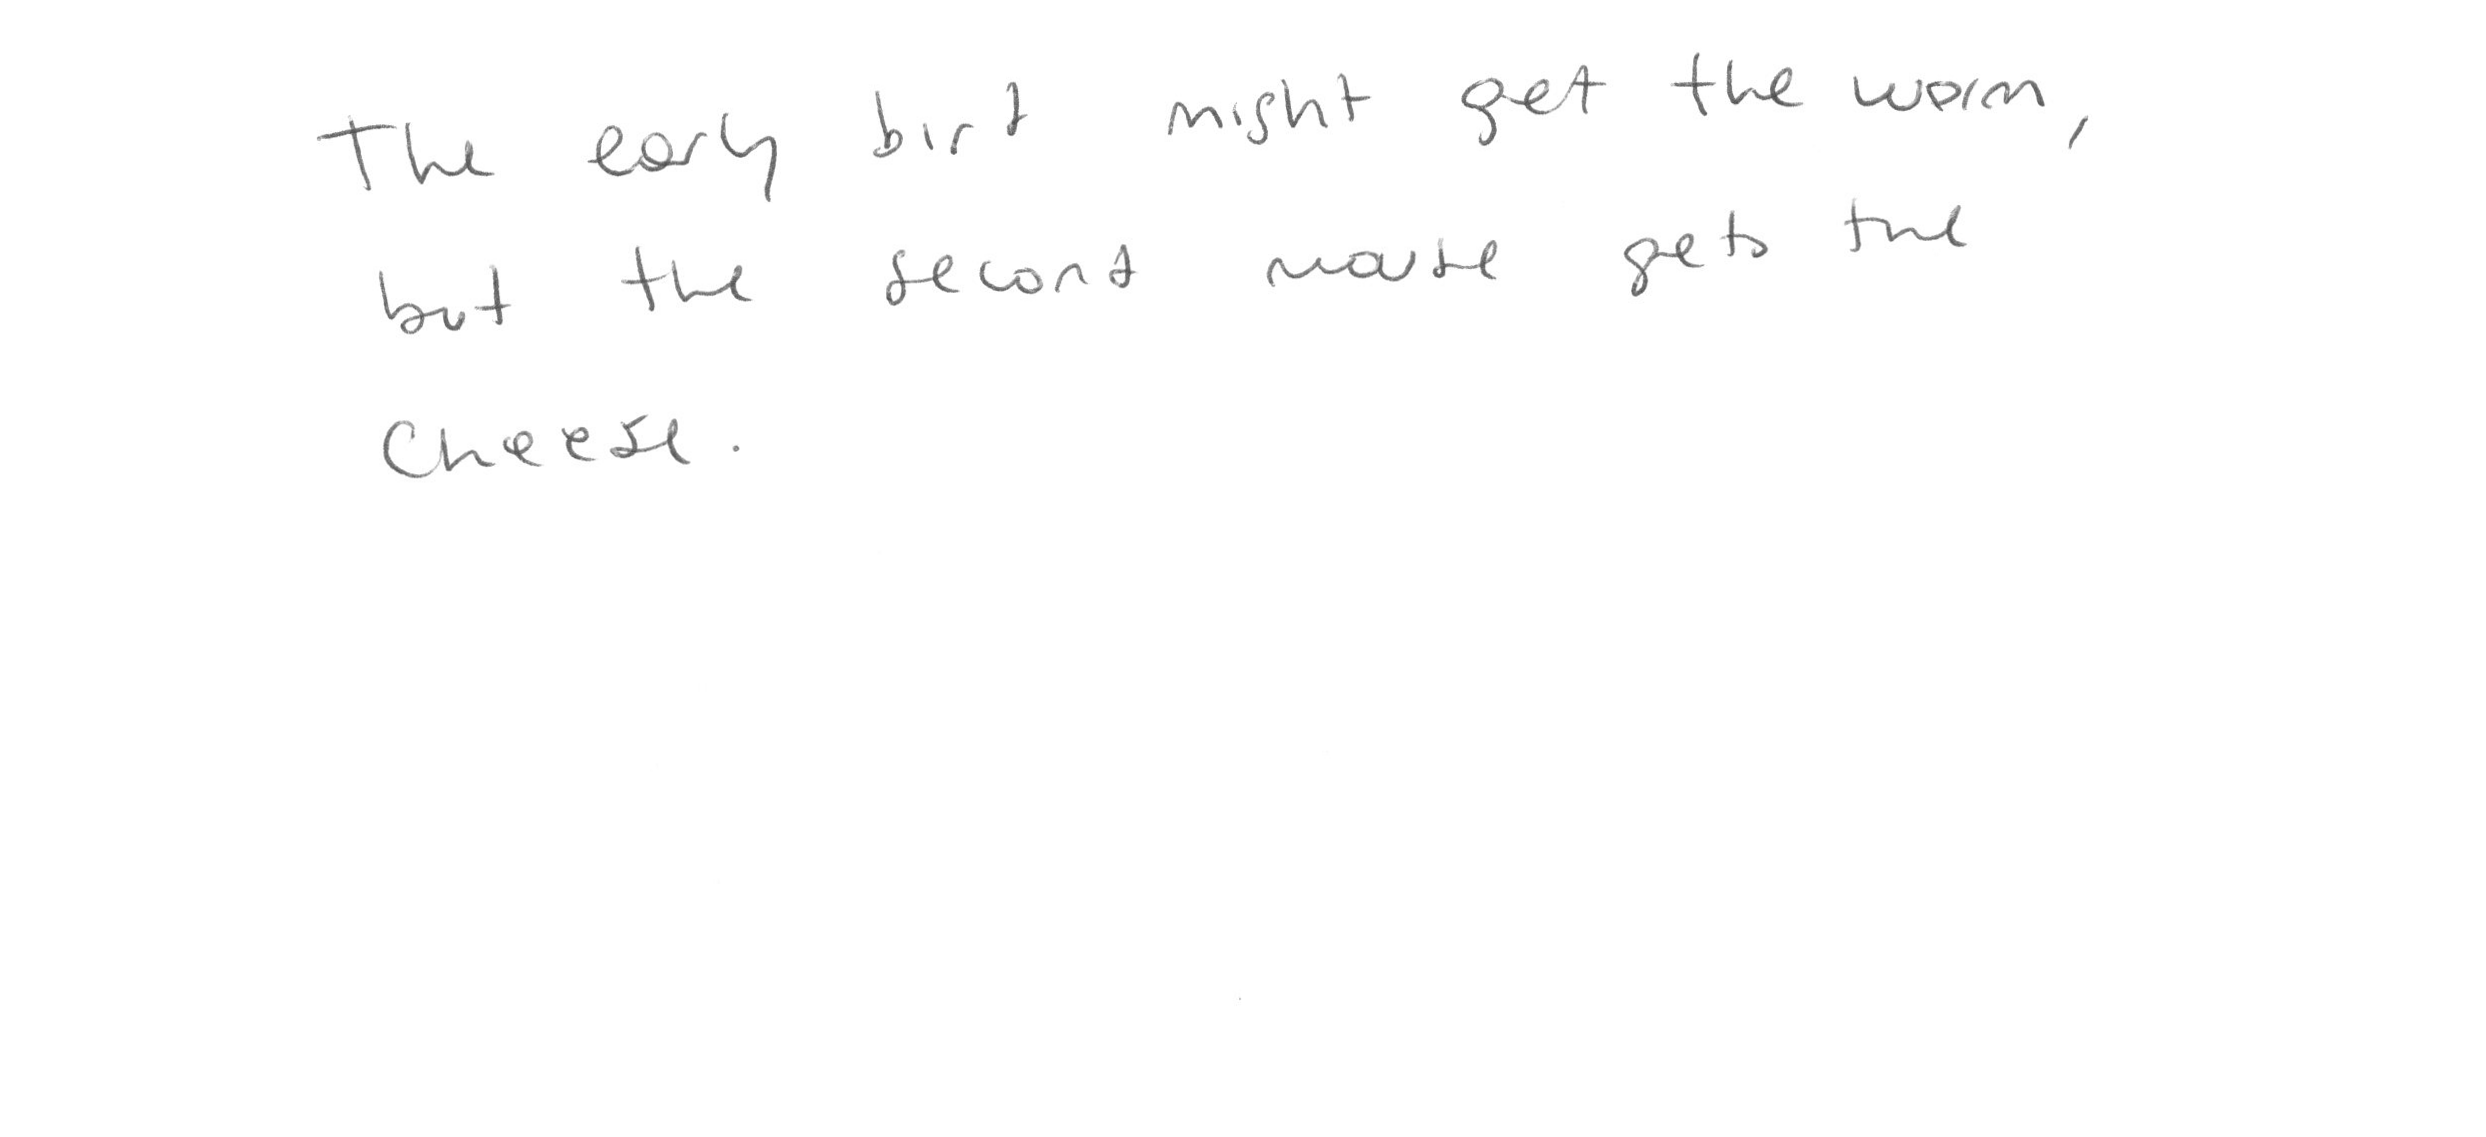 The early bird might get the worm,
but the second mouse gets the
cheese.